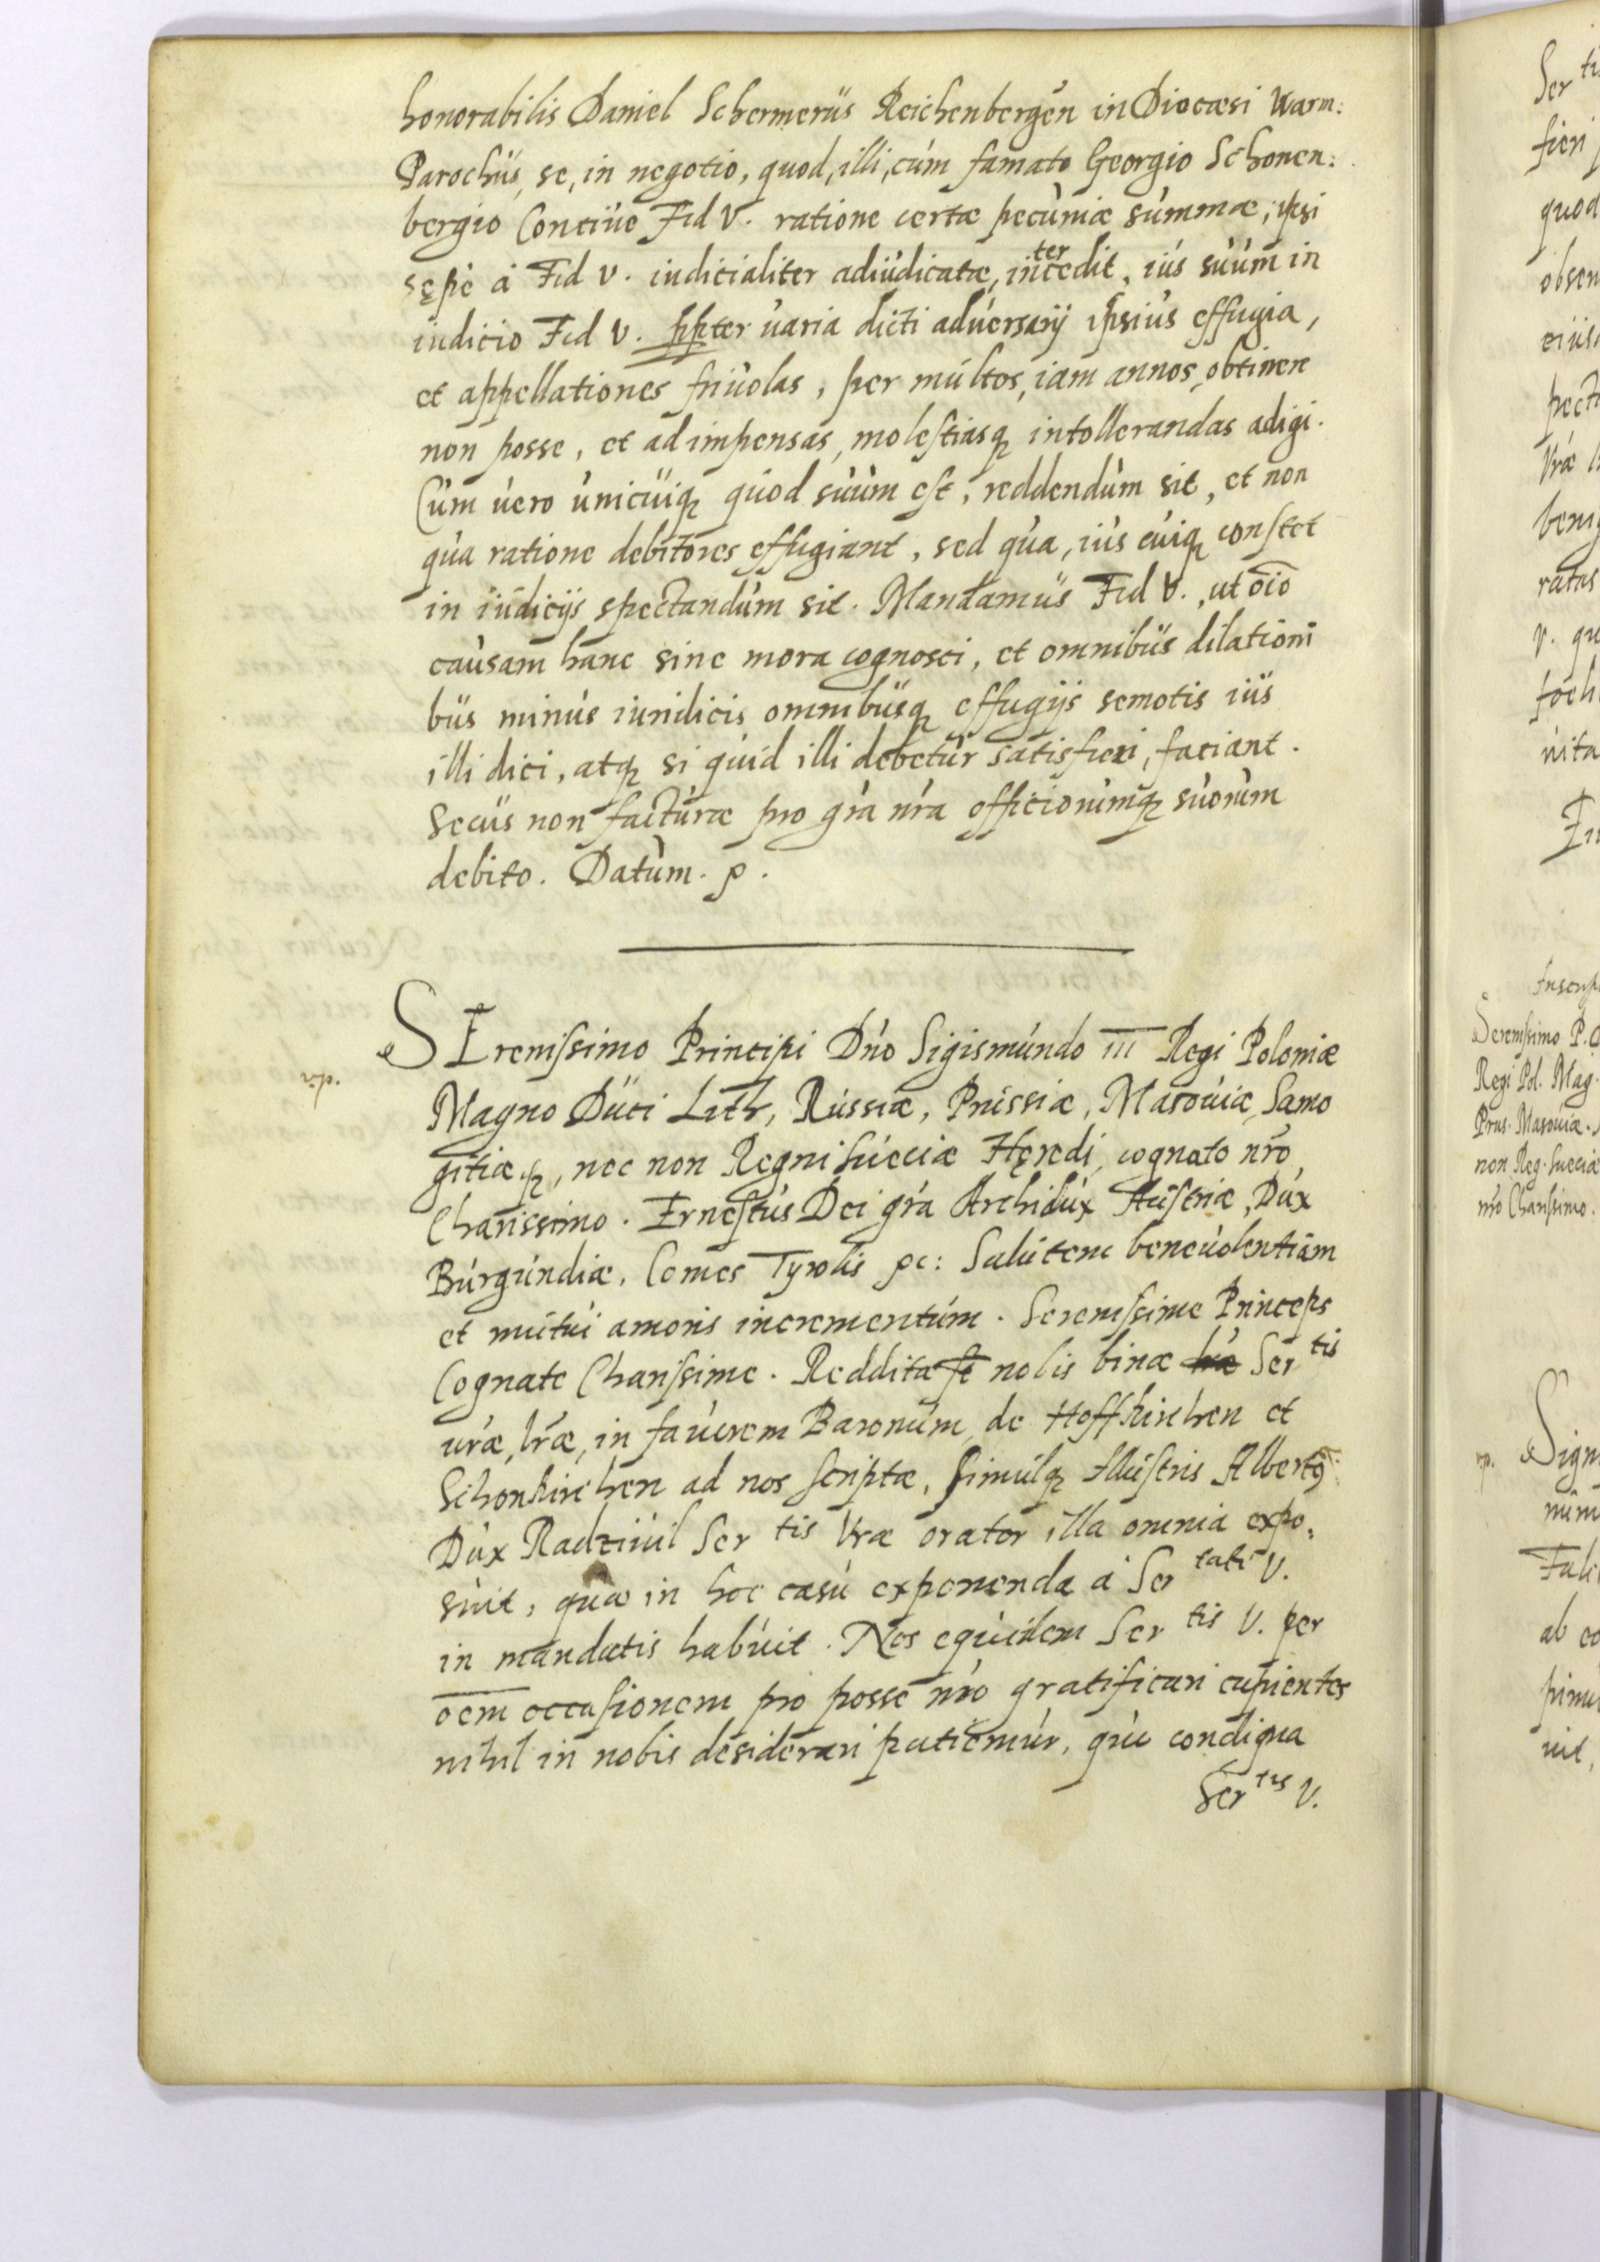 honorabilis Daniel Schermerus Reichenbergen̄ in Diocæsi Warm:
Parochus, se, in negotio, quod, illi, cum famato Georgio Schonen:
bergio Conciue Fid V. ratione certæ pecuniæ summæ, ipsi
sępe à Fid V. iudicialiter adiudicatæ, intercedit, ius suum in
iudicio Fid V. ppter uaria dicti aduersarij ipsius effugia,
et appellationes friuolas, per multos, iam annos, obtinere
non posse, et ad impensas, molestiasq intollerandas adigi.
Cum uero unicuiq quod suum est, reddendum sit, et non
qua ratione debitores effugiant, sed qua, ius cuiq constet
in iudicijs spectandum sit. Mandamus Fid V., ut oīo
causam hanc sine mora cognosci, et omnibus dilationi
bus minus iuridicis omnibusq effugijs semotis ius
illi dici, atq si quid illi debetur satisfieri, faciant.
Secus non facturæ pro gra nra officiorumq suorum
debito. Datum. p.
SErenissimo Principi Dno Sigismundo III Regi Poloniæ
Magno Duci Lith, Russiæ, Prussiæ, Masouiæ, Samo
gitiæq, nec non Regni Sueciæ Hęredi, cognato nro
Charissimo. Ernestus Dei gra Archidux Austriæ, Dux
Burgundiæ, Comes Tyrolis pc: Salutem beneuolentiam
et mutui amoris incrementum. Serenissime Princeps
Cognate Charissime. Redditæ st nobis binæ Ser tis
uræ, lræ, in fauorem Baronum, de Hoffkirchen et
Schonkirchen ad nos scriptæ, simulq Illustris Albertꝰ
Dux Radziuil Ser tis Vræ orator illa omnia expo,
suit, quæ in hoc casu exponenda à Ser tati V.
in mandatis habuit. Nos equidem Ser tis V. per
oem occasionem pro posse nro gratificari cupientes
nihil in nobis desiderari patiemur, qui condigna
Ser tis V.
Ser ti
fieri
quod
obser
eius
ratas
V. qu
Inscrip
Serenissimo P. D
Regi Pol. Mag.
Prus. Masouiæ.
non Reg. Sueciæ
nro Charissimo.
Sign
ab eo